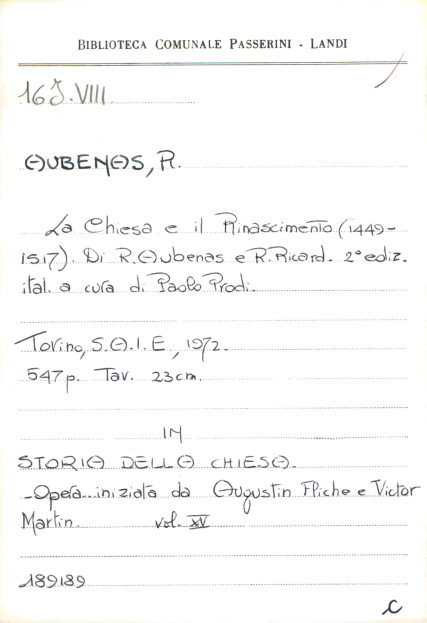 BIBLIOTECA COMUNALE PASSERINI - LANDI
16 J. VIII
AUBENAS, R.
La Chiesa e il Rinascimento (1449-
1517). Di R. Aubenas e R. Ricard. 2ª ediz.
ital. a cura di Paolo Prodi.
Torino, S.A.I.E., 1972.
547 p. Tav. 23 cm.
IN
STORIA DELLA CHIESA.
-Opera iniziata da Augustin Fliche e Victor
Martin. vol. XV
189189
C